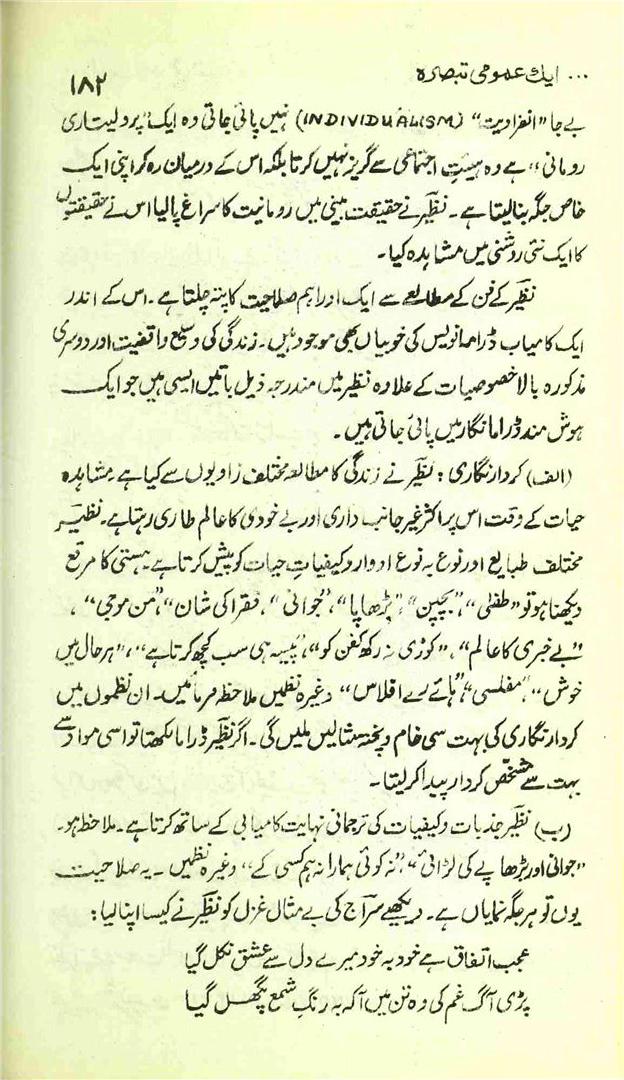 ... ایک عمومی تبصرہ
۱۸۲
بے جا "انفرادیت" (INDIVIDUALISM) نہیں پائی جاتی وہ ایک "پرولیتاری
رومانی" ہے وہ ہیئتِ اجتماعی سے گریز نہیں کرتا بلکہ اس کے درمیان رہ کر اپنی ایک
خاص جگہ بنا لیتا ہے۔ نظیرؔ نے حقیقت بینی میں رومانیت کا سراغ پا لیا اس نے حقیقتوں
کا ایک نئی روشنی میں مشاہدہ کیا۔
نظیرؔ کے فن کے مطالعے سے ایک اور اہم صلاحیت کا پتہ چلتا ہے۔ اس کے اندر
ایک کامیاب ڈرامانویس کی خوبیاں بھی موجود ہیں۔ زندگی کی وسیع واقفیت اور دوسری
مذکورہ بالا خصوصیات کے علاوہ نظیرؔ میں مندرجہ ذیل باتیں ایسی ہیں جو ایک
ہوش مند ڈراما نگار میں پائی جاتی ہیں۔
(الف) کردار نگاری: نظیرؔ نے زندگی کا مطالعہ مختلف زاویوں سے کیا ہے۔ مشاہدہ
حیات کے وقت اس پر اکثر غیر جانب داری اور بے خودی کا عالم طاری رہتا ہے۔ نظیرؔ
مختلف طبایع اور نوع بہ نوع ادوار و کیفیاتِ حیات کو پیش کرتا ہے۔ ہستی کا مرقع
دیکھنا ہو تو "طفلی"، "بچپن"، "بڑھاپا"، "جوانی"، "فقرا کی شان"، "من موجی"،
"بے خبری کا عالم"، "کوڑی نہ رکھ کفن کو"، "پیسہ ہی سب کچھ کرتا ہے"، "ہر حال میں
خوش"، "مفلسی"، "ہائے رے افلاس" وغیرہ نظمیں ملاحظہ فرمائیں۔ ان نظموں میں
کردار نگاری کی بہت سی خام و پختہ مثالیں ملیں گی۔ اگر نظیرؔ ڈراما لکھتا تو اسی مواد سے
بہت سے مشخص کردار پیدا کر لیتا۔
(ب) نظیرؔ جذبات و کیفیات کی ترجمانی نہایت کامیابی کے ساتھ کرتا ہے۔ ملاحظہ ہو۔
"جوانی اور بڑھاپے کی لڑائی"، "نہ کوئی ہمارا نہ ہم کسی کے" وغیرہ نظمیں۔ یہ صلاحیت
یوں تو ہر جگہ نمایاں ہے۔ دیکھیے سراجؔ کی بے مثال غزل کو نظیرؔ نے کیسا اپنا لیا:
عجب اتفاق ہے خود بہ خود میرے دل سے عشق نکل گیا
پڑی آگ غم کی وہ تن میں آ کہ بہ رنگِ شمع پگھل گیا